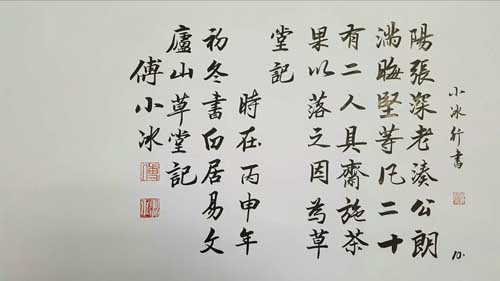 小冰行書
10.
陽張深老湊公朗
滿晦堅等凡二十
有二人具齋施茶
果以落之因為草
堂記
時在丙申年
初冬書白居易文
廬山草堂記
傅小冰